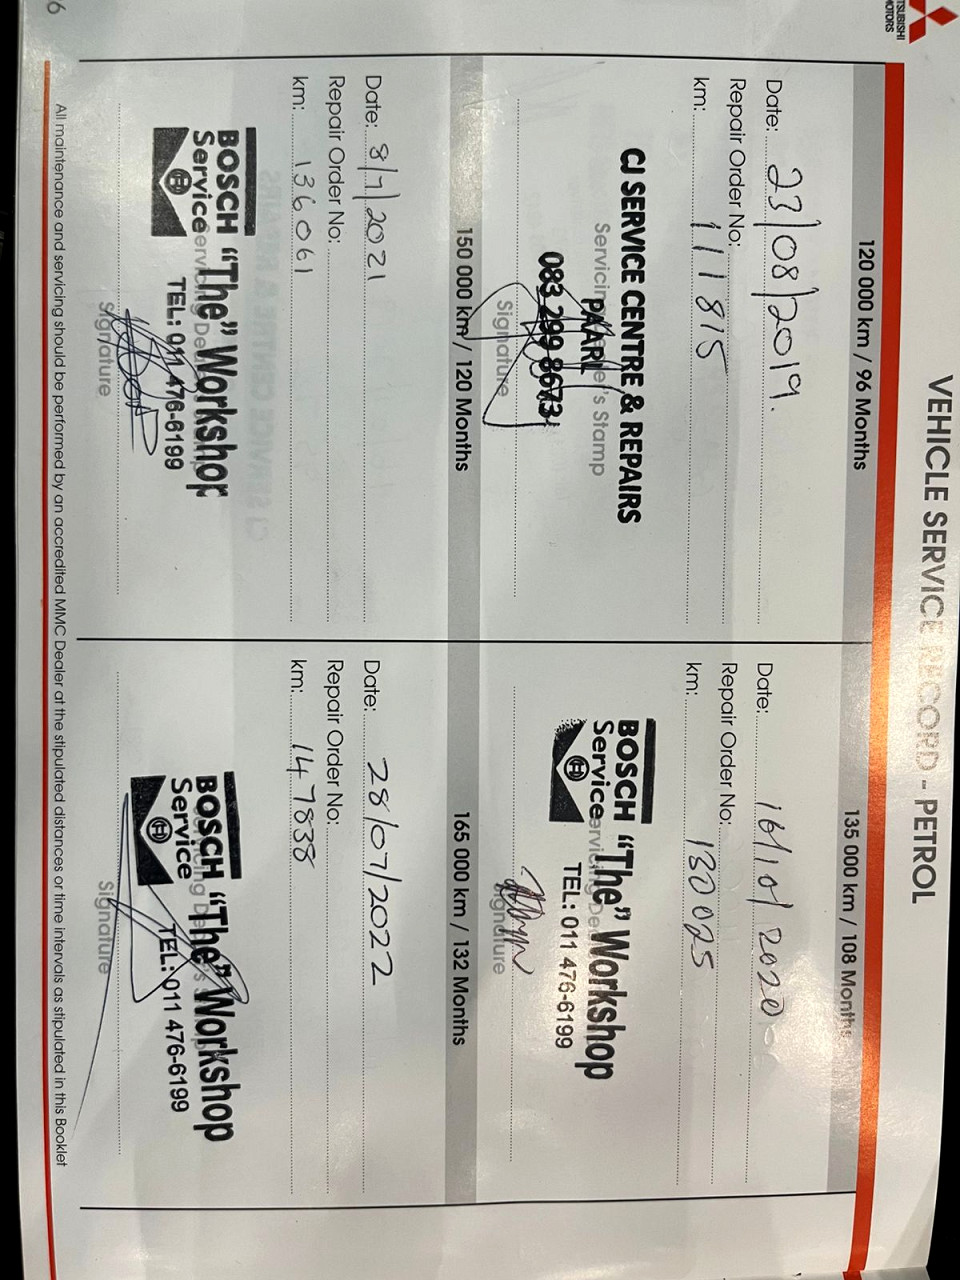 MITSUBISHI
MOTORS
VEHICLE SERVICE RECORD - PETROL
120 000 km / 96 Months
Date: 23/08/2019.
Repair Order No:
km: 111815
CJ SERVICE CENTRE & REPAIRS
Servicing Dealer's Stamp
PAARL
083 299 8673
Signature
135 000 km / 108 Months
Date: 16/10/2020
Repair Order No:
km: 130025
BOSCH "The" Workshop
Service
TEL: 011 476-6199
Signature
150 000 km / 120 Months
Date: 8/7/2021
Repair Order No:
km: 136061
BOSCH "The" Workshop
Service
TEL: 011 476-6199
Signature
165 000 km / 132 Months
Date: 28/07/2022
Repair Order No:
km: 147838
BOSCH "The" Workshop
Service
TEL: 011 476-6199
Signature
All maintenance and servicing should be performed by an accredited MMC Dealer at the stipulated distances or time intervals as stipulated in this Booklet
6